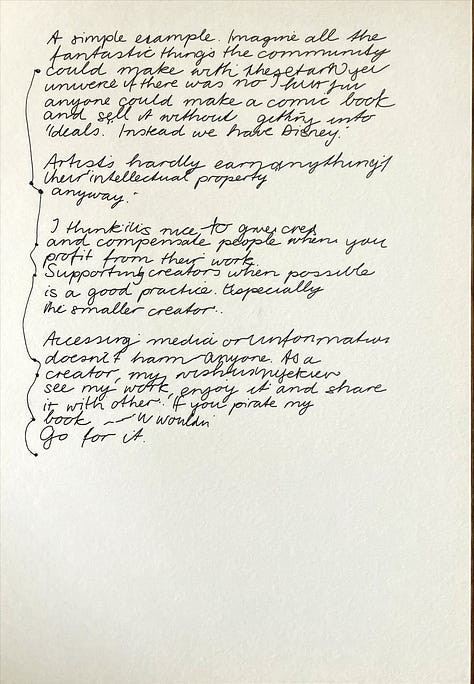 A simple example. Imagine all the
fantastic things the community
could make with the star Wars
universe if there was no
anyone could make a comic book
and sell it without getting into
'deals. Instead we have Disney.
Artists hardly earn anything
their intellectual property
anyway.
I think it is nice to give cred
and compensate people when you
profit from their work.
Supporting creators when possible
is a good practice. Especially
the smaller creator..
Accessing media or information
doesn't harm anyone. As a
creator, my wish
see my work, enjoy it and share
it with other. If you pirate my
book
Go for it.